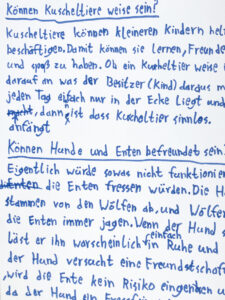 Können Kuscheltiere weise sein?
Kuscheltiere können kleineren Kindern hel
beschäftigen. Damit können sie lernen, Freunde
und spaß zu haben. Ob ein Kuscheltier weise i
darauf an was der Besitzer (Kind) daraus m
jeden Tag eifach nur in der Ecke liegt und
dann ist dass Kuscheltier sinnlos.
anfängt
Können Hunde und Enten befreundet sein?
Eigentlich würde sowas nicht funktionier
die Enten fressen würden. Die H
stammen von den Wölfen ab, und Wölfen
die Enten immer jagen. Wenn der Hund s
einfach
Läst er ihn warscheinlich in Ruhe und
der Hund versucht eine Freundschaft
wird die Ente kein Risiko eingehen u
da der Hund ein